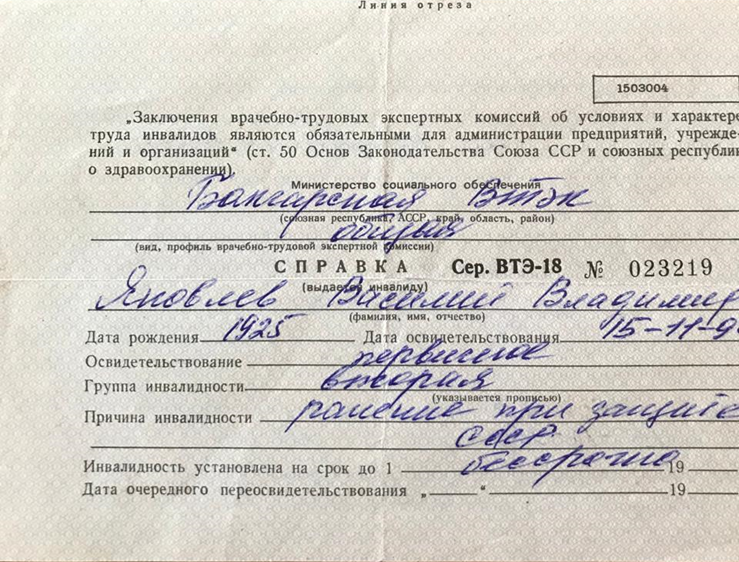 Линия отреза
1503004
„Заключения врачебно-трудовых экспертных комиссий об условиях и характере
труда инвалидов являются обязательными для администрации предприятий, учрежде-
ний и организаций“ (ст. 50 Основ Законодательства Союза ССР и союзных республик
о здравоохранении).
Министерство социального обеспечения
ВТЭК
(союзная республика, АССР, край, область, район)
общая
(вид, профиль врачебно-трудовой экспертной комиссии)
СПРАВКА Сер. ВТЭ-18 № 023219
(выдается инвалиду)
Яковлев Василий Владимир
(фамилия, имя, отчество)
Дата рождения 1925 Дата освидетельствования 15-11-9
Освидетельствование первичное
Группа инвалидности вторая
(указывается прописью)
Причина инвалидности ранение при защите
СССР
Инвалидность установлена на срок до 1 бессрочно 19
Дата очередного переосвидетельствования „ “ 19